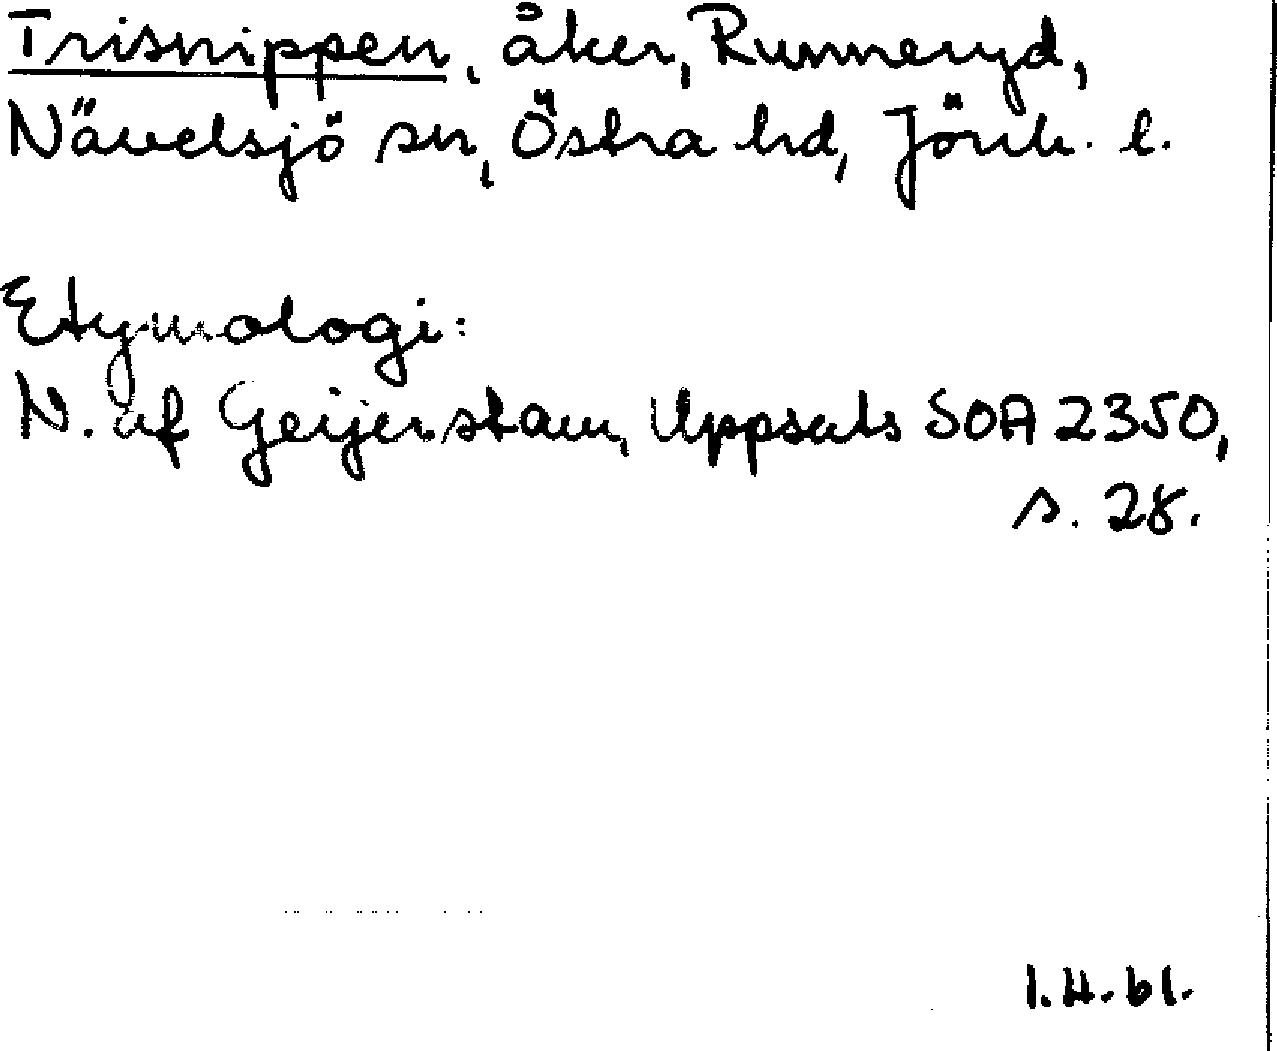 Trisnippen, åker, Runneryd,
Nävelsjö sn, Östra hd, Jönk. l.
Etymologi:
N. af Geijerstam, Uppsats SOA 2350,
s. 28.
I.H.61.